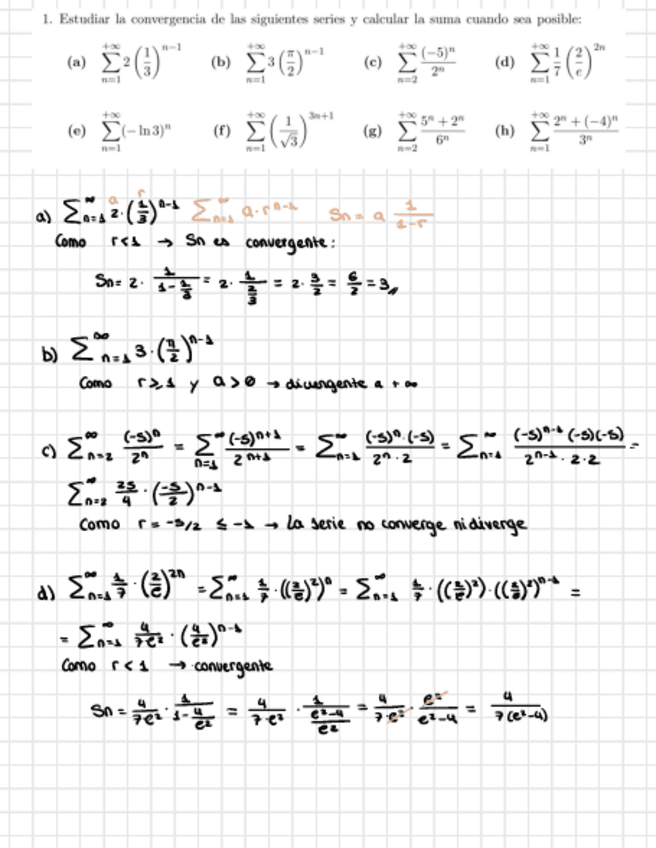 1. Estudiar la convergencia de las siguientes series y calcular la suma cuando sea posible:
(a) ∑_{n=1}^{+∞} 2 (1/3)^{n-1} (b) ∑_{n=1}^{+∞} 3 (π/2)^{n-1} (c) ∑_{n=2}^{+∞} (-5)^n / 2^n (d) ∑_{n=1}^{+∞} 1/7 (2/e)^{2n}
(e) ∑_{n=1}^{+∞} (- ln 3)^n (f) ∑_{n=1}^{+∞} (1/√3)^{3n+1} (g) ∑_{n=2}^{+∞} (5^n + 2^n) / 6^n (h) ∑_{n=1}^{+∞} (2^n + (-4)^n) / 3^n
a r
a) ∑_{n=1}^{∞} 2 · (1/3)^{n-1} ∑_{n=1}^{∞} a · r^{n-1} Sn = a 1/(1-r)
Como r<1 → Sn es convergente:
Sn = 2 · 1/(1-1/3) = 2 · 1/(2/3) = 2 · 3/2 = 6/2 = 3
b) ∑_{n=1}^{∞} 3 · (π/2)^{n-1}
Como r ≥ 1 y a > 0 → divergente a +∞
c) ∑_{n=2}^{∞} (-5)^n / 2^n = ∑_{n=1}^{∞} (-5)^{n+1} / 2^{n+1} = ∑_{n=1}^{∞} (-5)^n · (-5) / 2^n · 2 = ∑_{n=1}^{∞} (-5)^{n-1} (-5)(-5) / 2^{n-1} · 2 · 2 =
∑_{n=2}^{∞} 25/4 · (-5/2)^{n-1}
Como r = -5/2 ≤ -1 → La serie no converge ni diverge
d) ∑_{n=1}^{∞} 1/7 · (2/e)^{2n} = ∑_{n=1}^{∞} 1/7 · ((2/e)^2)^n = ∑_{n=1}^{∞} 1/7 · ((2/e)^2) · ((2/e)^2)^{n-1} =
= ∑_{n=1}^{∞} 4/7e^2 · (4/e^2)^{n-1}
Como r < 1 → convergente
Sn = 4/7e^2 · 1/(1-4/e^2) = 4/7·e^2 · 1/((e^2-4)/e^2) = 4/7·e^2 · e^2/(e^2-4) = 4/7(e^2-4)